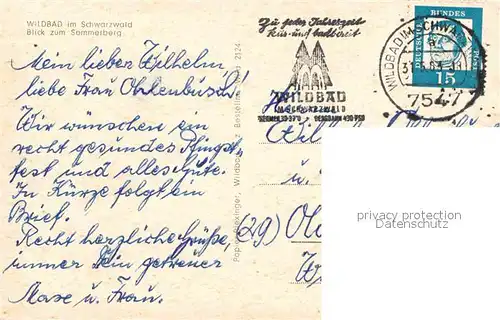 WILDBAD im Schwarzwald
Blick zum Sommerberg
Mein lieber Wilhelm,
liebe Frau
Wir wünschen ein
recht gesundes Pfingst-
fest und alles Gute.
In Kürze folgt ein
Brief.
Recht herzliche Grüße,
immer Dein getreuer
Max u. Frau.
Bestellnr. 2124
Zu jeder Jahreszeit
Kur- und badbereit
WILDBAD
IM SCHWARZWALD
BERGBAHN 430-750
WILDBAD IM SCHWARZW
7547
DEUTSCHE BUNDESPOST
15
u.
(29)
privacy protection
Datenschutz